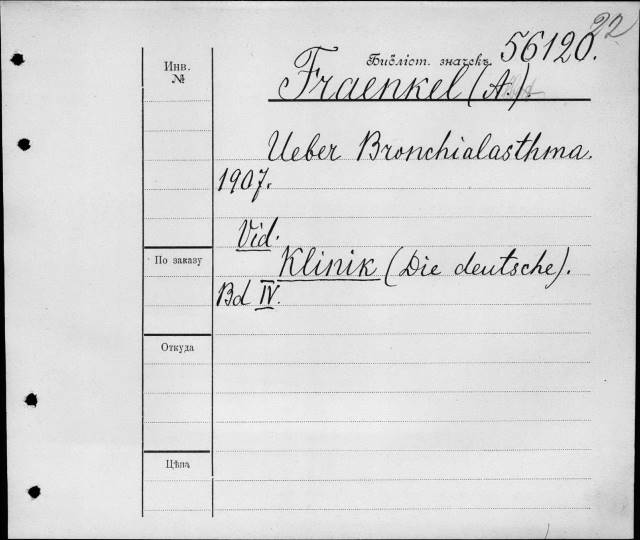 22
Библіот. значекъ 56120.
Инв.
№
Fraenkel (A.)
Ueber Bronchialasthma.
1907.
Vid.
По заказу
Klinik (Die deutsche).
Bd IV.
Откуда
Цѣна